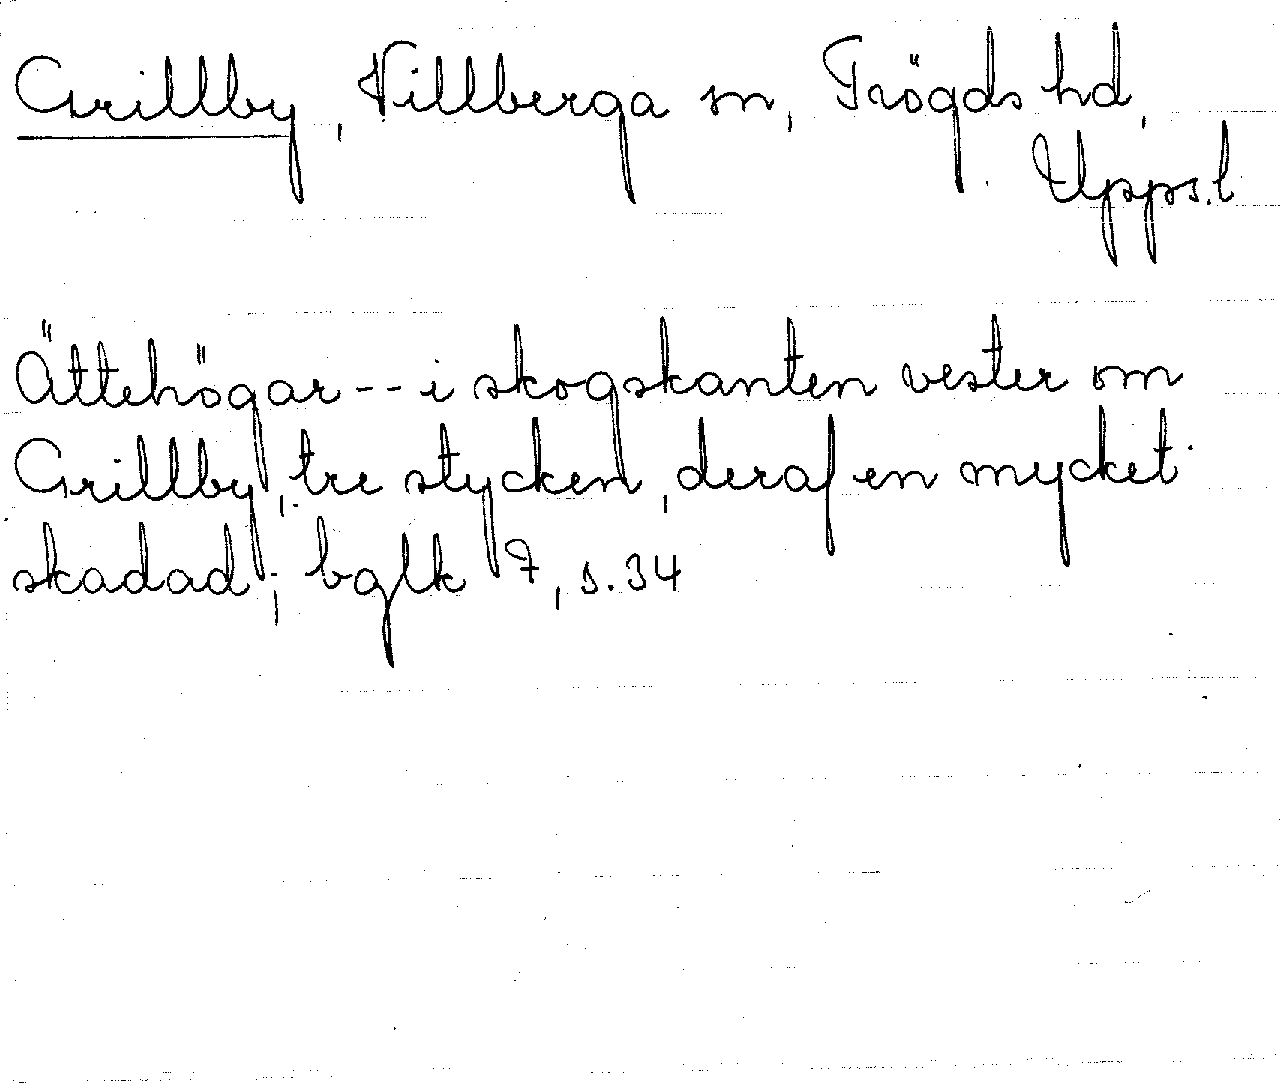 Grillby, Villberga sn, Trögds hd,
Upps.l
Ättehögar -- i skogskanten vester om
Grillby, tre stycken, deraf en mycket
skadad; bglk 7, s. 34